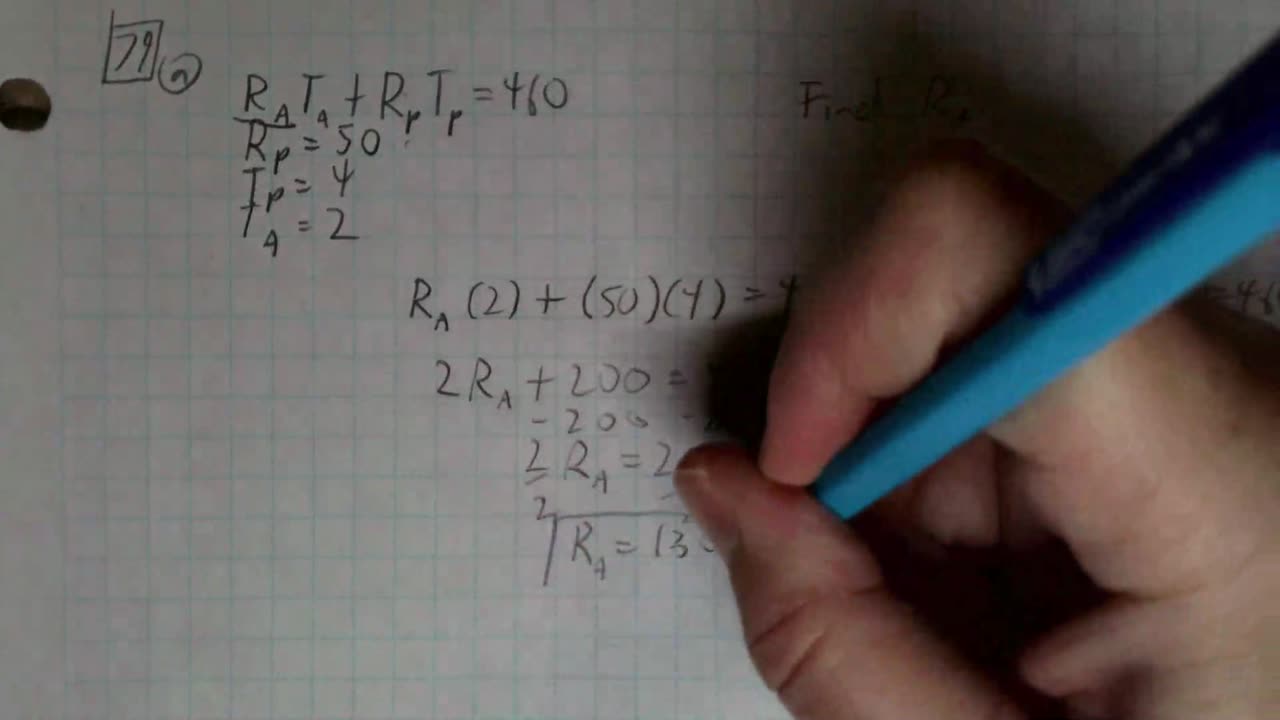 79 a
R_A T_A + R_P T_P = 460
Find R
R_P = 50
T_P = 4
T_A = 2
R_A (2) + (50)(4) = 4
2 R_A + 200 =
- 200 -
2 R_A = 2
2
R_A = 130